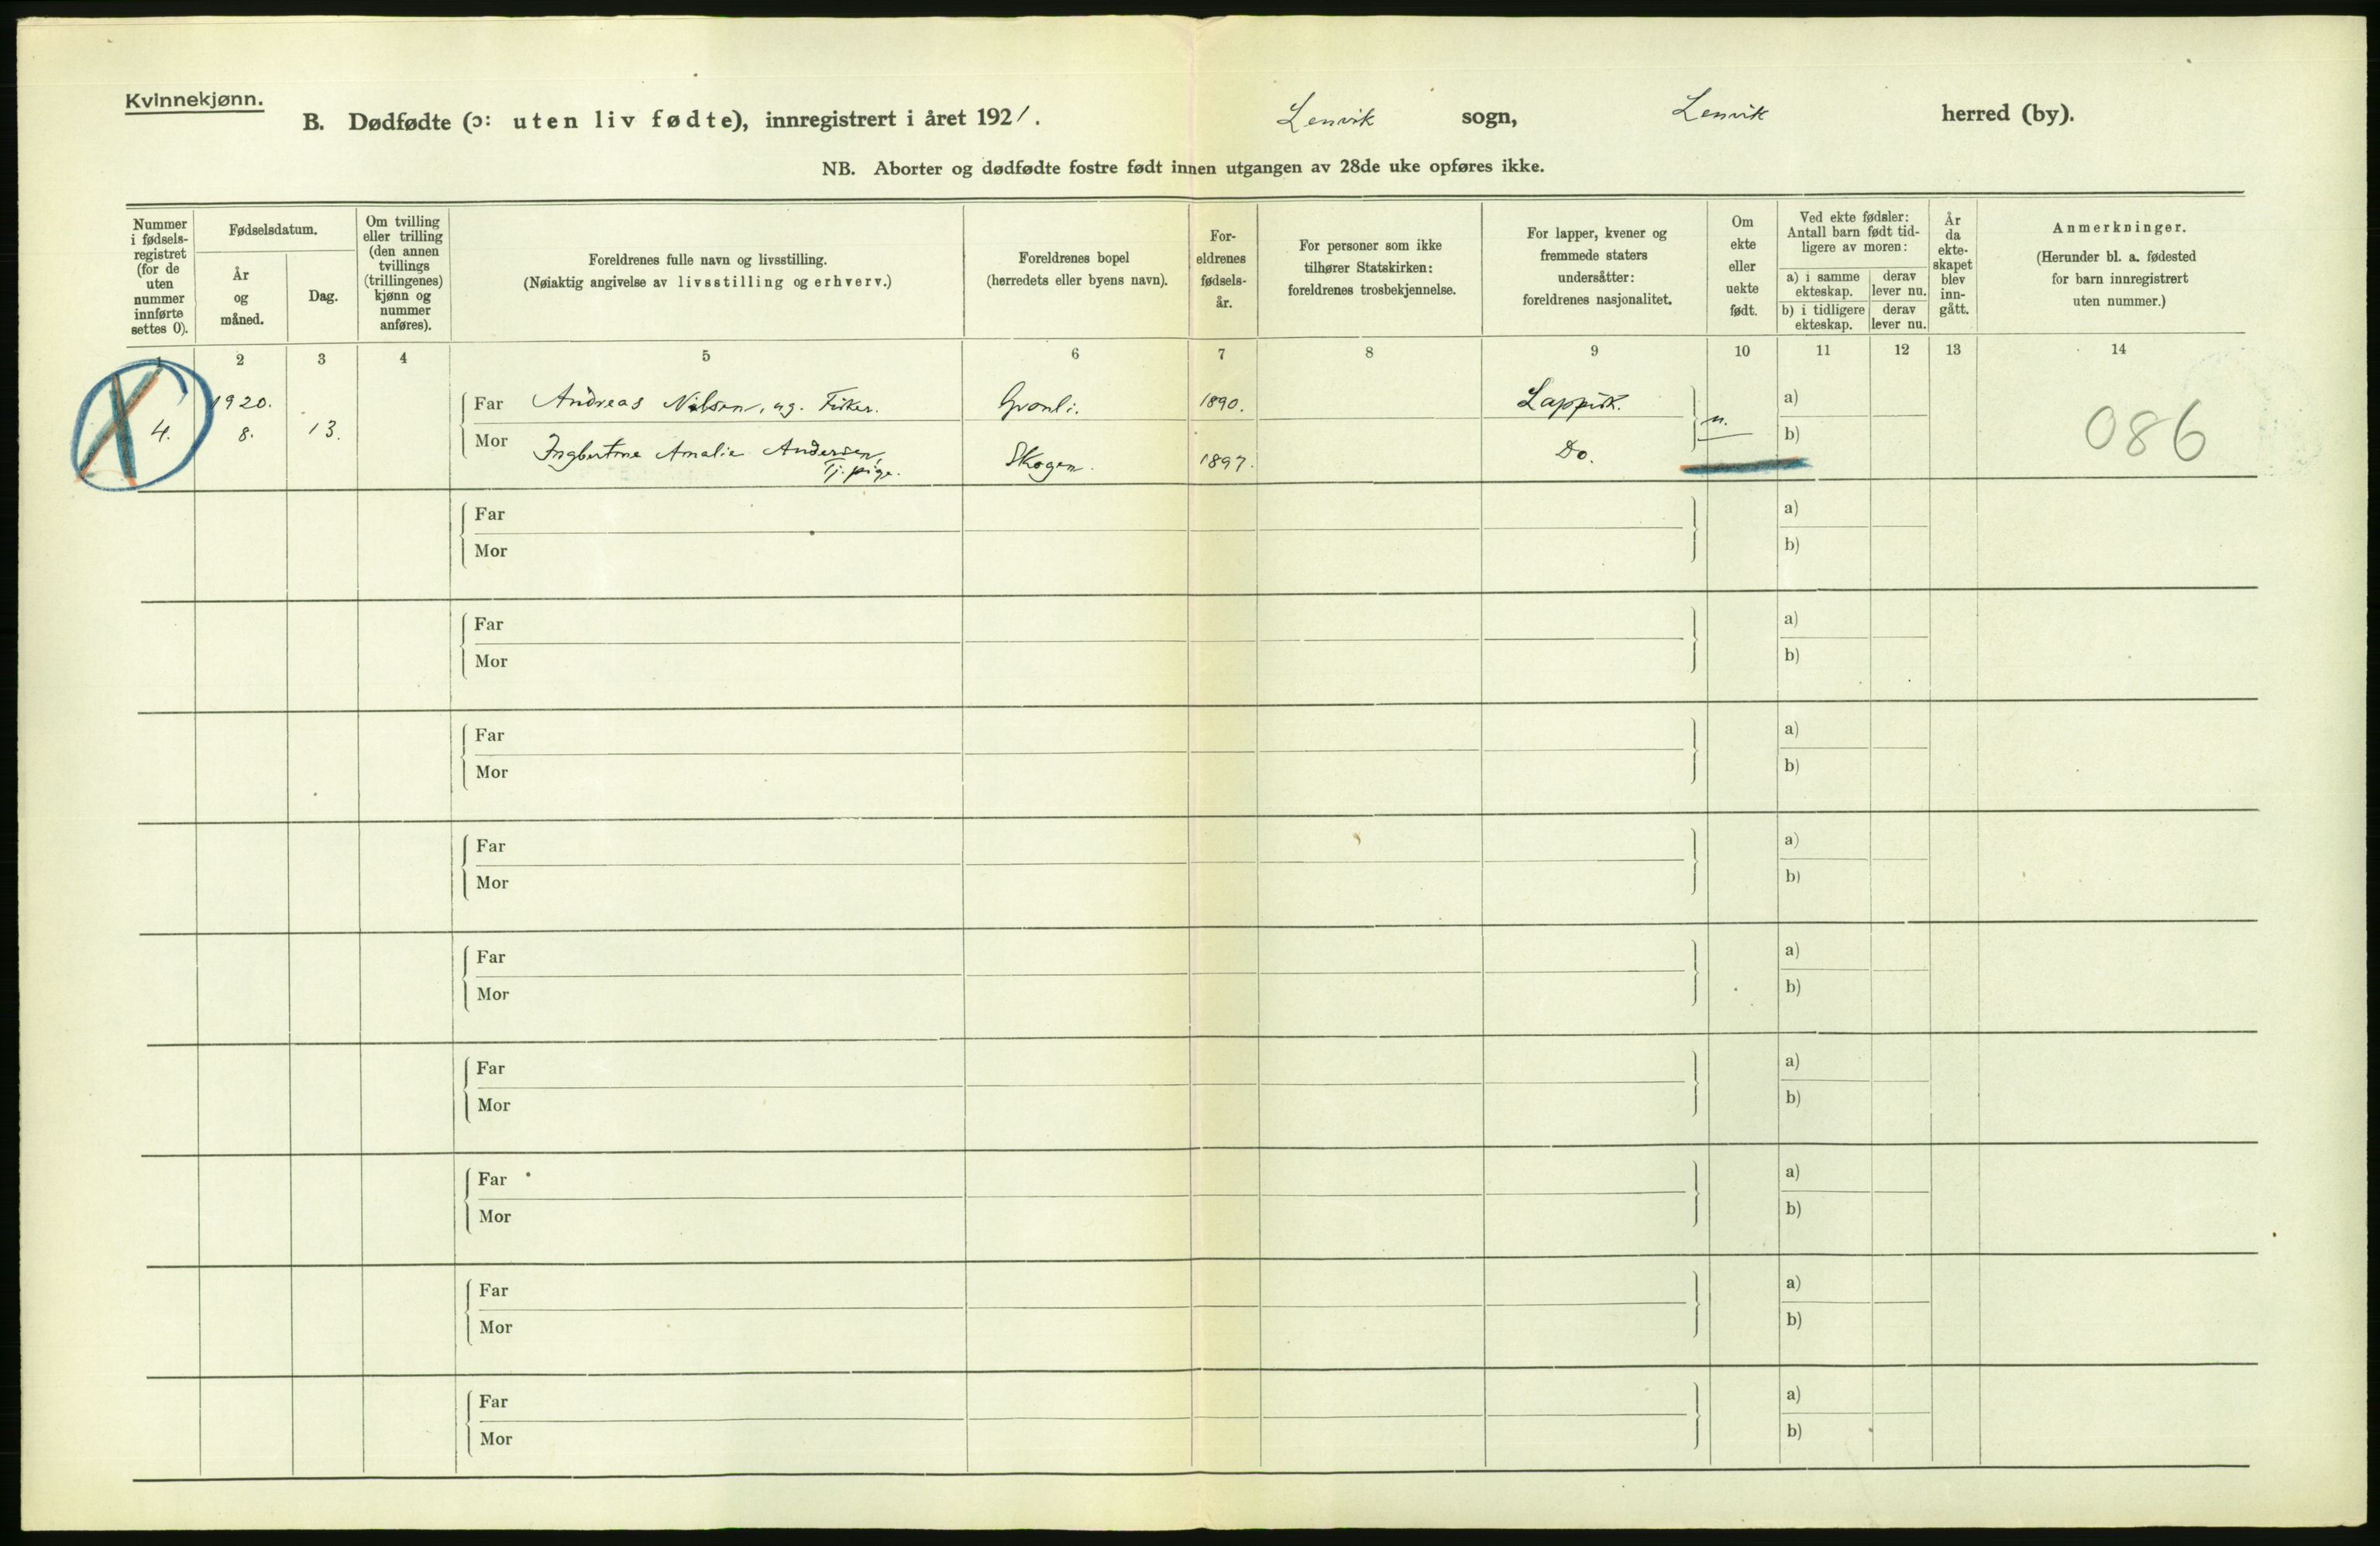 Kvinnekjønn.
B. Dødfødte (ɔ: uten liv fødte), innregistrert i året 1921. Lenvik sogn, Lenvik herred (by).
NB. Aborter og dødfødte fostre født innen utgangen av 28de uke opføres ikke.
Nummer
i fødsels-
registret
(for de
uten
nummer
innførte
settes 0).
Fødselsdatum.
År
og
måned.
Dag.
Om tvilling
eller trilling
(den annen
tvillings
(trillingenes)
kjønn og
nummer
anføres).
Foreldrenes fulle navn og livsstilling.
(Nøiaktig angivelse av livsstilling og erhverv.)
Foreldrenes bopel
(herredets eller byens navn).
For-
eldrenes
fødsels-
år.
For personer som ikke
tilhører Statskirken:
foreldrenes trosbekjennelse.
For lapper, kvener og
fremmede staters
undersåtter:
foreldrenes nasjonalitet.
Om
ekte
eller
uekte
født.
Ved ekte fødsler:
Antall barn født tid-
ligere av moren:
a) i samme
ekteskap.
derav
lever nu.
b) i tidligere
ekteskap.
derav
lever nu.
År
da
ekte-
skapet
blev
inn-
gått.
Anmerkninger.
(Herunder bl. a. fødested
for barn innregistrert
uten nummer.)
1 2 3 4 5 6 7 8 9 10 11 12 13 14
1920.
4. 8. 13.
Far Andreas Nilsen, ug. Fisker. Grønli. 1890. Lappisk. u. a)
Mor Ingbertine Amalie Andersen, Skogen. 1897. Do. b)
Tj. pige.
086
Far a)
Mor b)
Far a)
Mor b)
Far a)
Mor b)
Far a)
Mor b)
Far a)
Mor b)
Far a)
Mor b)
Far a)
Mor b)
Far a)
Mor b)
Far a)
Mor b)